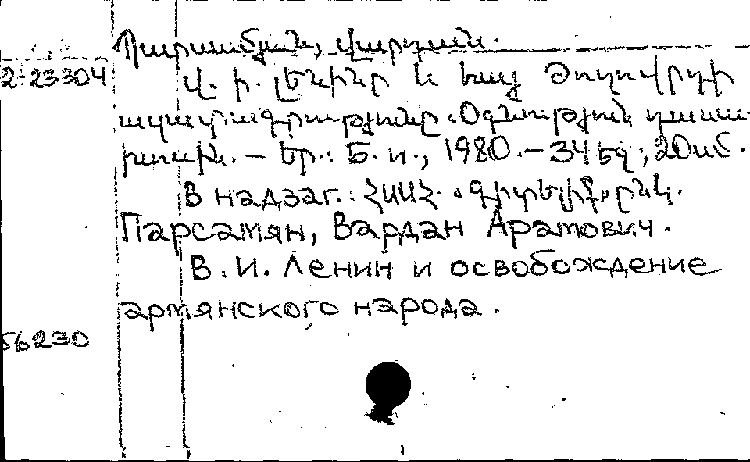 Պարսամյան, Վարդան.
2-23304
Վ. Ի. Լենինը և հայ ժողովրդի
ազատագրությունը. Օգնության դասա
խոսին. — Եր.: Б. и., 1980. — 34 էջ; 20 սմ.
В надзаг.: ՀՍՍՀ. «Գիտելիք» ընկ.
Парсамян, Вардан Арамович.
В. И. Ленин и освобождение
армянского народа.
56230